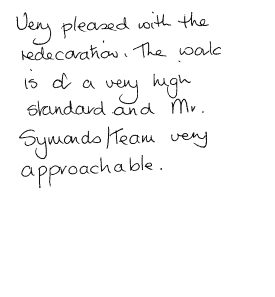 Very pleased with the
redecoration. The work
is of a very high
standard and Mr.
Symonds/Team very
approachable.